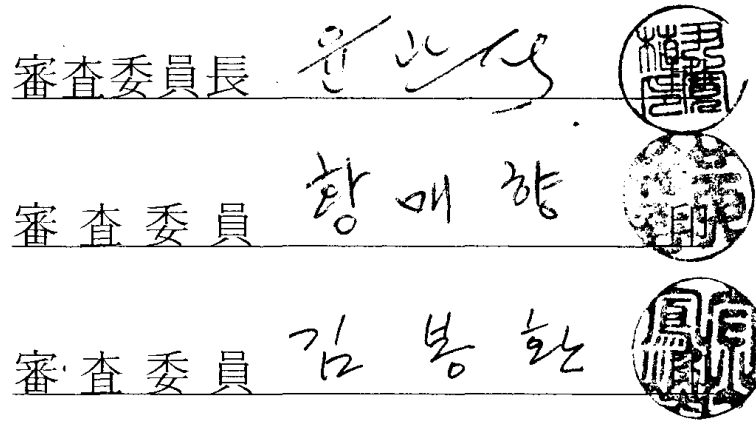 審査委員長 윤관식
審査委員 황매향
審査委員 김봉환